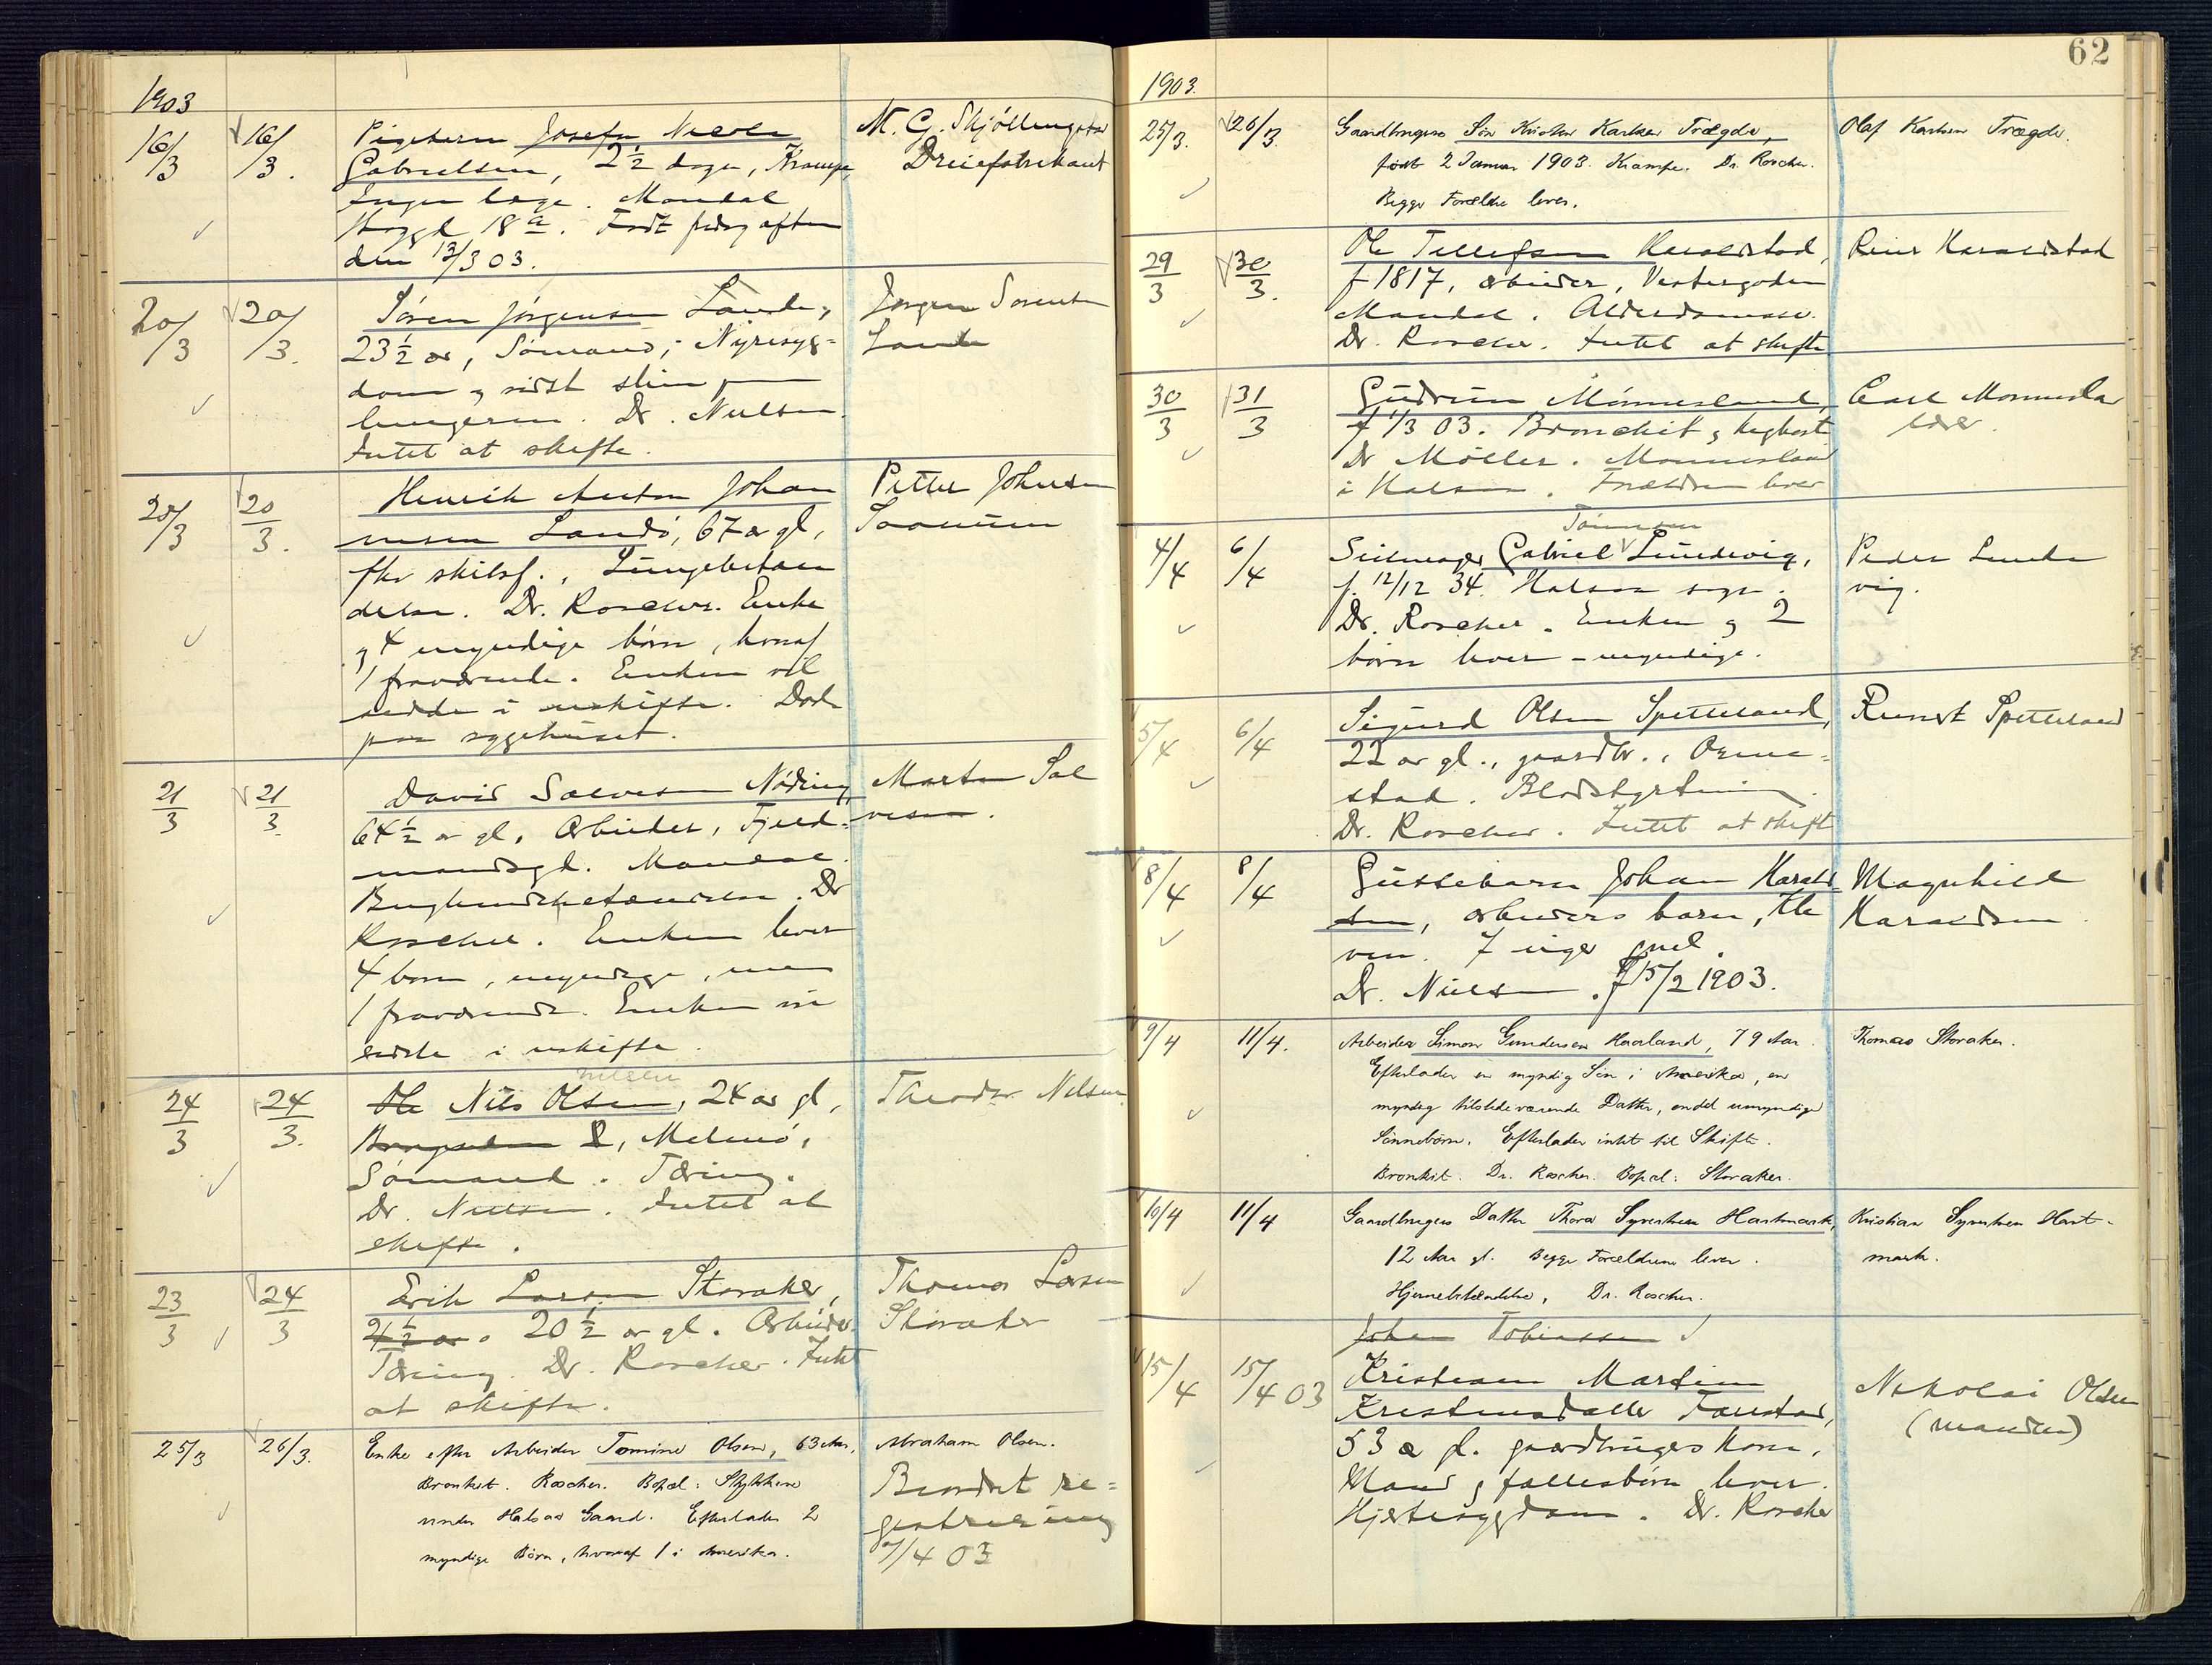 1903
16/3 16/3. Pigebarn Josefa Nicola M. G. Skjöllingstad
Gabrielsen, 2 1/2 dage, Krampe, Dreiefabrikant
Ingen læge. Mandal
Skoggd 18 a. Født fredag aften
den 13/3 03.
20/3 20/3. Søren Jørgensen Lande, Jørgen Sørensen
23 1/2 år, Sømand; Nyresyg= Lande
dom og sidst slim paa
lungerne. Dr. Nielsen.
Intet at skifte.
20/3 20/3. Henrik Anton Johan Petter Johnsen
nesen Landö, 67 år gl, Saanum
fhv skibsf., Lungebetæn
delse. Dr. Roscher. Enke
og 4 myndige börn, hvoraf
1 fraværende. Enken vil
sidde i uskifte. Död
paa sygehuset.
21/3 21/3. David Salvesen Nöding, Martin Sal
64 1/2 år gl, Arbeider, Fjeld= vesen.
mandsgd. Mandal.
Bughindebetændelse. Dr
Roscher. Enken lever
4 børn, myndige,
1 fraværende. Enken vil
sidde i uskifte.
24/3 24/3. Ole Nils Olsen, 24 år gl, Theodor Nilsen
nilsen
Malmö,
Sömand. Tæring.
Dr. Nielsen. Intet at
skifte.
23/3 24/3 Erik Larsen Storaker, Thomas Larsen
21 1/2 år. 20 1/2 år gl. Arbeider. Storaker
Tæring. Dr. Roscher. Intet
at skifte.
25/3 26/3. Enke efter Arbeider Tomine Olsen, 63 Aar, Abraham Olsen.
Bronkit. Roscher. Bopæl: Stykkene
under Halsaa Gaard. Efterlader 2
myndige Børn, hvoraf 1 i Amerika.
Beordret re=
gistrering
7/4 03
62
1903.
25/3. 26/3. Gaardbrugers Søn Kristen Karlsen Trægde, Olaf Karlsen Trægde.
født 2 Januar 1903. Krampe. Dr. Roscher.
Begge Forældre lever.
29/3 30/3. Ole Tellefsen Haraldstad, Reier Haraldstad
f 1817, arbeider, Vestergaden
Mandal. Alderdomssv.
Dr. Roscher. Intet at skifte
30/3 31/3 Gudrun Mönnesland, Carl Monnesla
f 1/3 03. Bronchit og kighoste
Dr Möller. Monnesland
i Halsaa. Forældrene lever
4/4 6/4 Seilmager Gabriel Tönnesen Lundevig, Peder Lunde
f. 12/12 34. Halsaa sogn. vig.
Dr. Roscher. Enken og 2
börn lever - myndige.
5/4 6/4 Sigurd Olsen Spetteland, Spetteland
22 år gl., gaardbr., Orme=
stad. Blodstyrtning.
Dr. Roscher. Intet at skifte
8/4 8/4 Guttebarn Johan Harald Magnhild
sen, arbeiders barn, Kle Haraldsen.
ven. 7 uger gml.
Dr. Nielsen. f 15/2 1903.
9/4 11/4. Arbeider Simon Gundersen Haaland, 79 Aar. Thomas Storaker.
Efterlader en myndig Søn i Amerika, en
myndig tilstedeværende Datter, endel umyndige
Sønnebørn. Efterlader intet til Skifte.
Bronkit. Dr. Roscher. Bopæl: Storaker.
10/4 11/4 Gaardbrugers Datter Thora Syvertsen Hartmark, Kristian Syvertsen Hart-
12 Aar gl. Begge Forældrene lever. mark.
Hjernebetændelse, Dr. Roscher.
Johan Tobiassen
15/4 15/4 03 Kristiane Martine Nikolai Olsen
Kristensdatter Tarestad, (manden)
53 år gl. gaardbrugers kone,
Mand og fællesbörn lever.
Hjertesygdom. Dr. Roscher